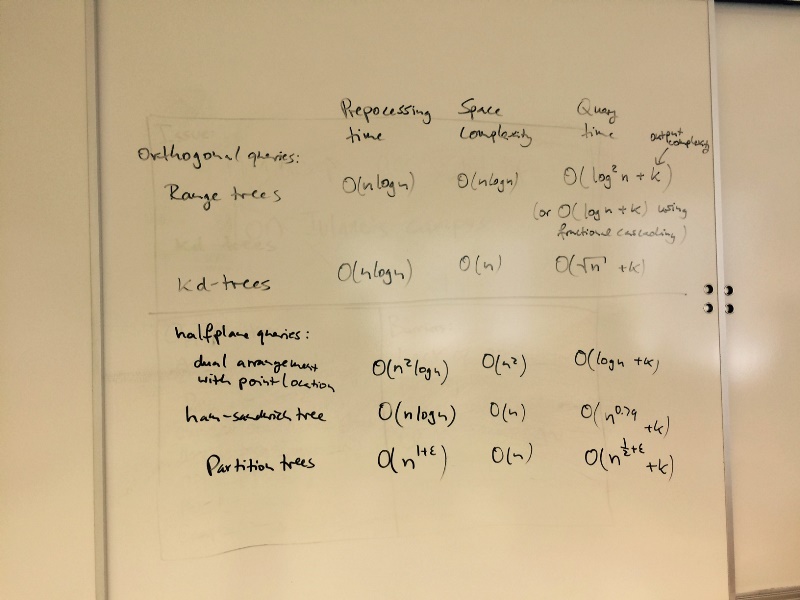 Prepocessing time
Space Complexity
Quary time
output complexity
Orthogonal queries:
Range trees O(n log n) O(n log n) O(log² n + k)
(or O(log n + k) using
fractional cascading)
kd-trees O(n log n) O(n) O(√n + k)
halfplane queries:
dual arrangement
with point location O(n² log n) O(n²) O(log n + k)
ham-sandwich tree O(n log n) O(n) O(n^0.79 + k)
Partition trees O(n^1+ε) O(n) O(n^½+ε + k)